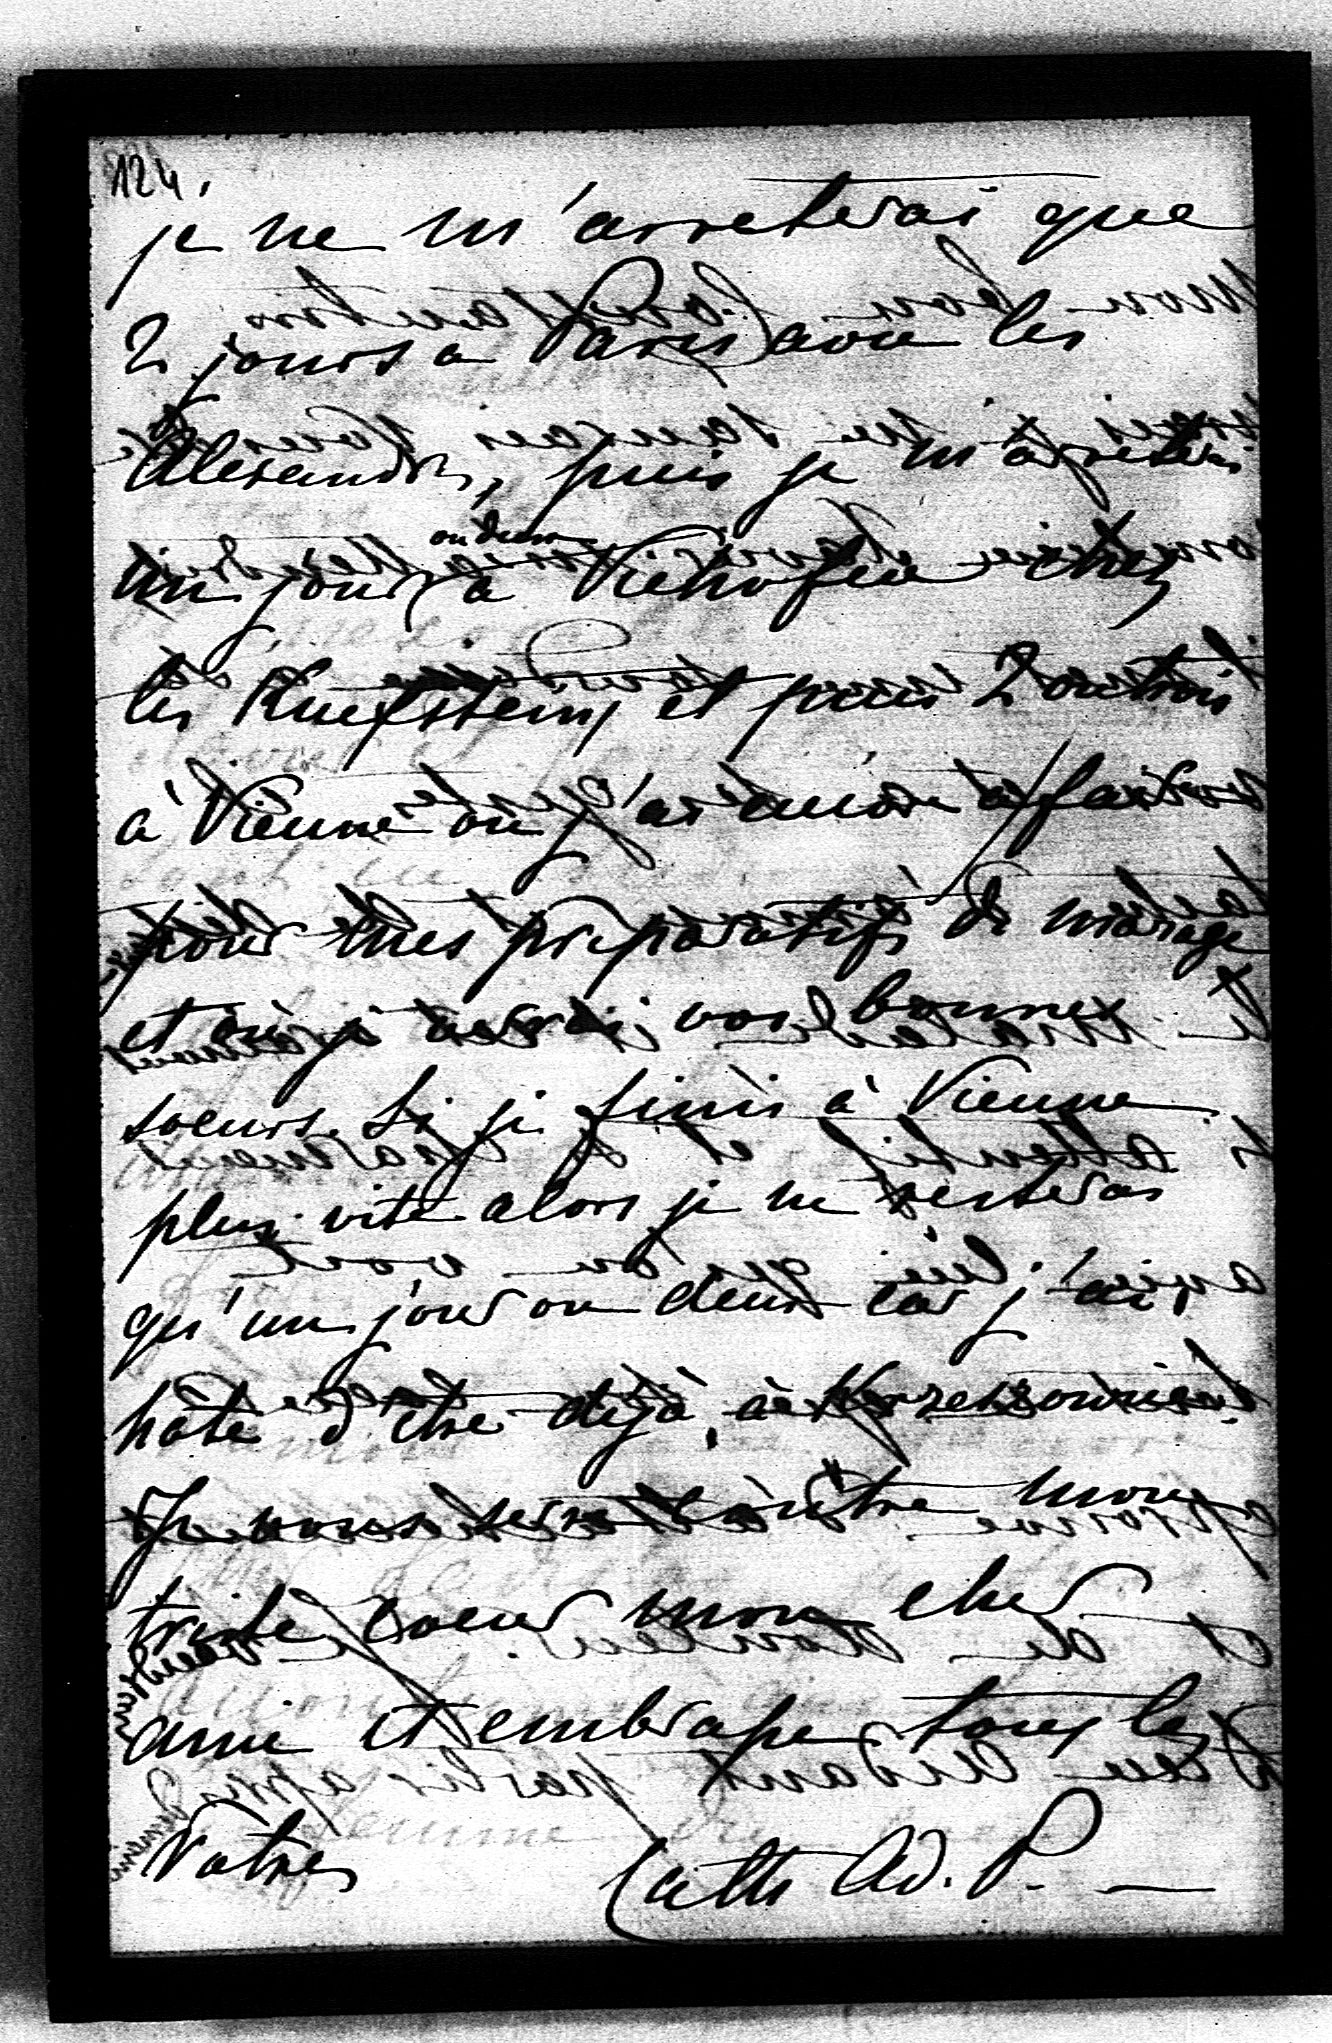 124.
je ne m'arreterai que
2 jours a Paris avec les
Alexandre, puis je m'arreterai
un jour ou deux à Viehofen chez
les Kuefstein, et puis 2 ou trois
à Vienne où j'ai encore à faire
pour mes préparatifs de mariage
et où j'aurai vos bonnes
soeurs. Si je finis à Vienne
plus vite alors je ne resterai
qu'un jour ou deux car j'ai
hâte d'être déjà à Krzeszowice.
Je vous serre contre mon
triste coeur mon cher
ami et embrasse tous les
Vôtres
Cath Ad. P. —